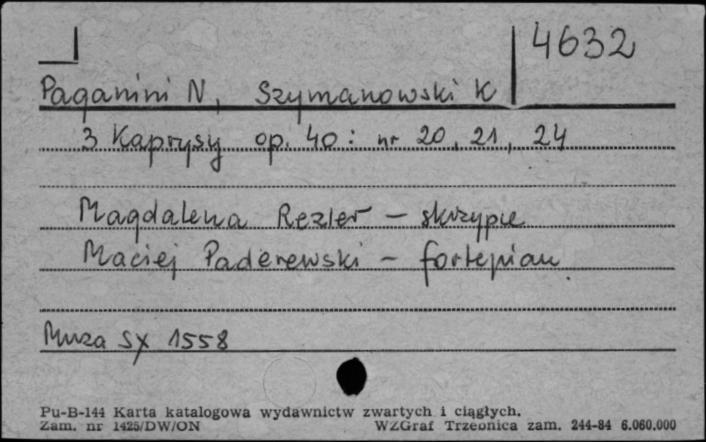 4632
Paganini N, Szymanowski K
3 Kaprysy op. 40: nr 20, 21, 24
Magdalena Rezler – skrzypce
Maciej Paderewski – fortepian
Muza SX 1558
Pu-B-144 Karta katalogowa wydawnictw zwartych i ciągłych.
Zam. nr 1425/DW/ON WZGraf Trzebnica zam. 244-84 6.060.000